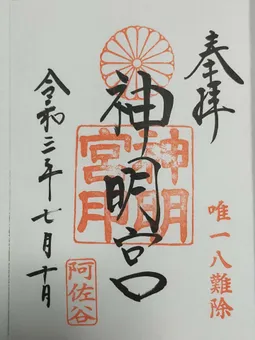 奉拝
唯一八難除
神明宮
神明宮
阿佐谷
令和三年七月十日